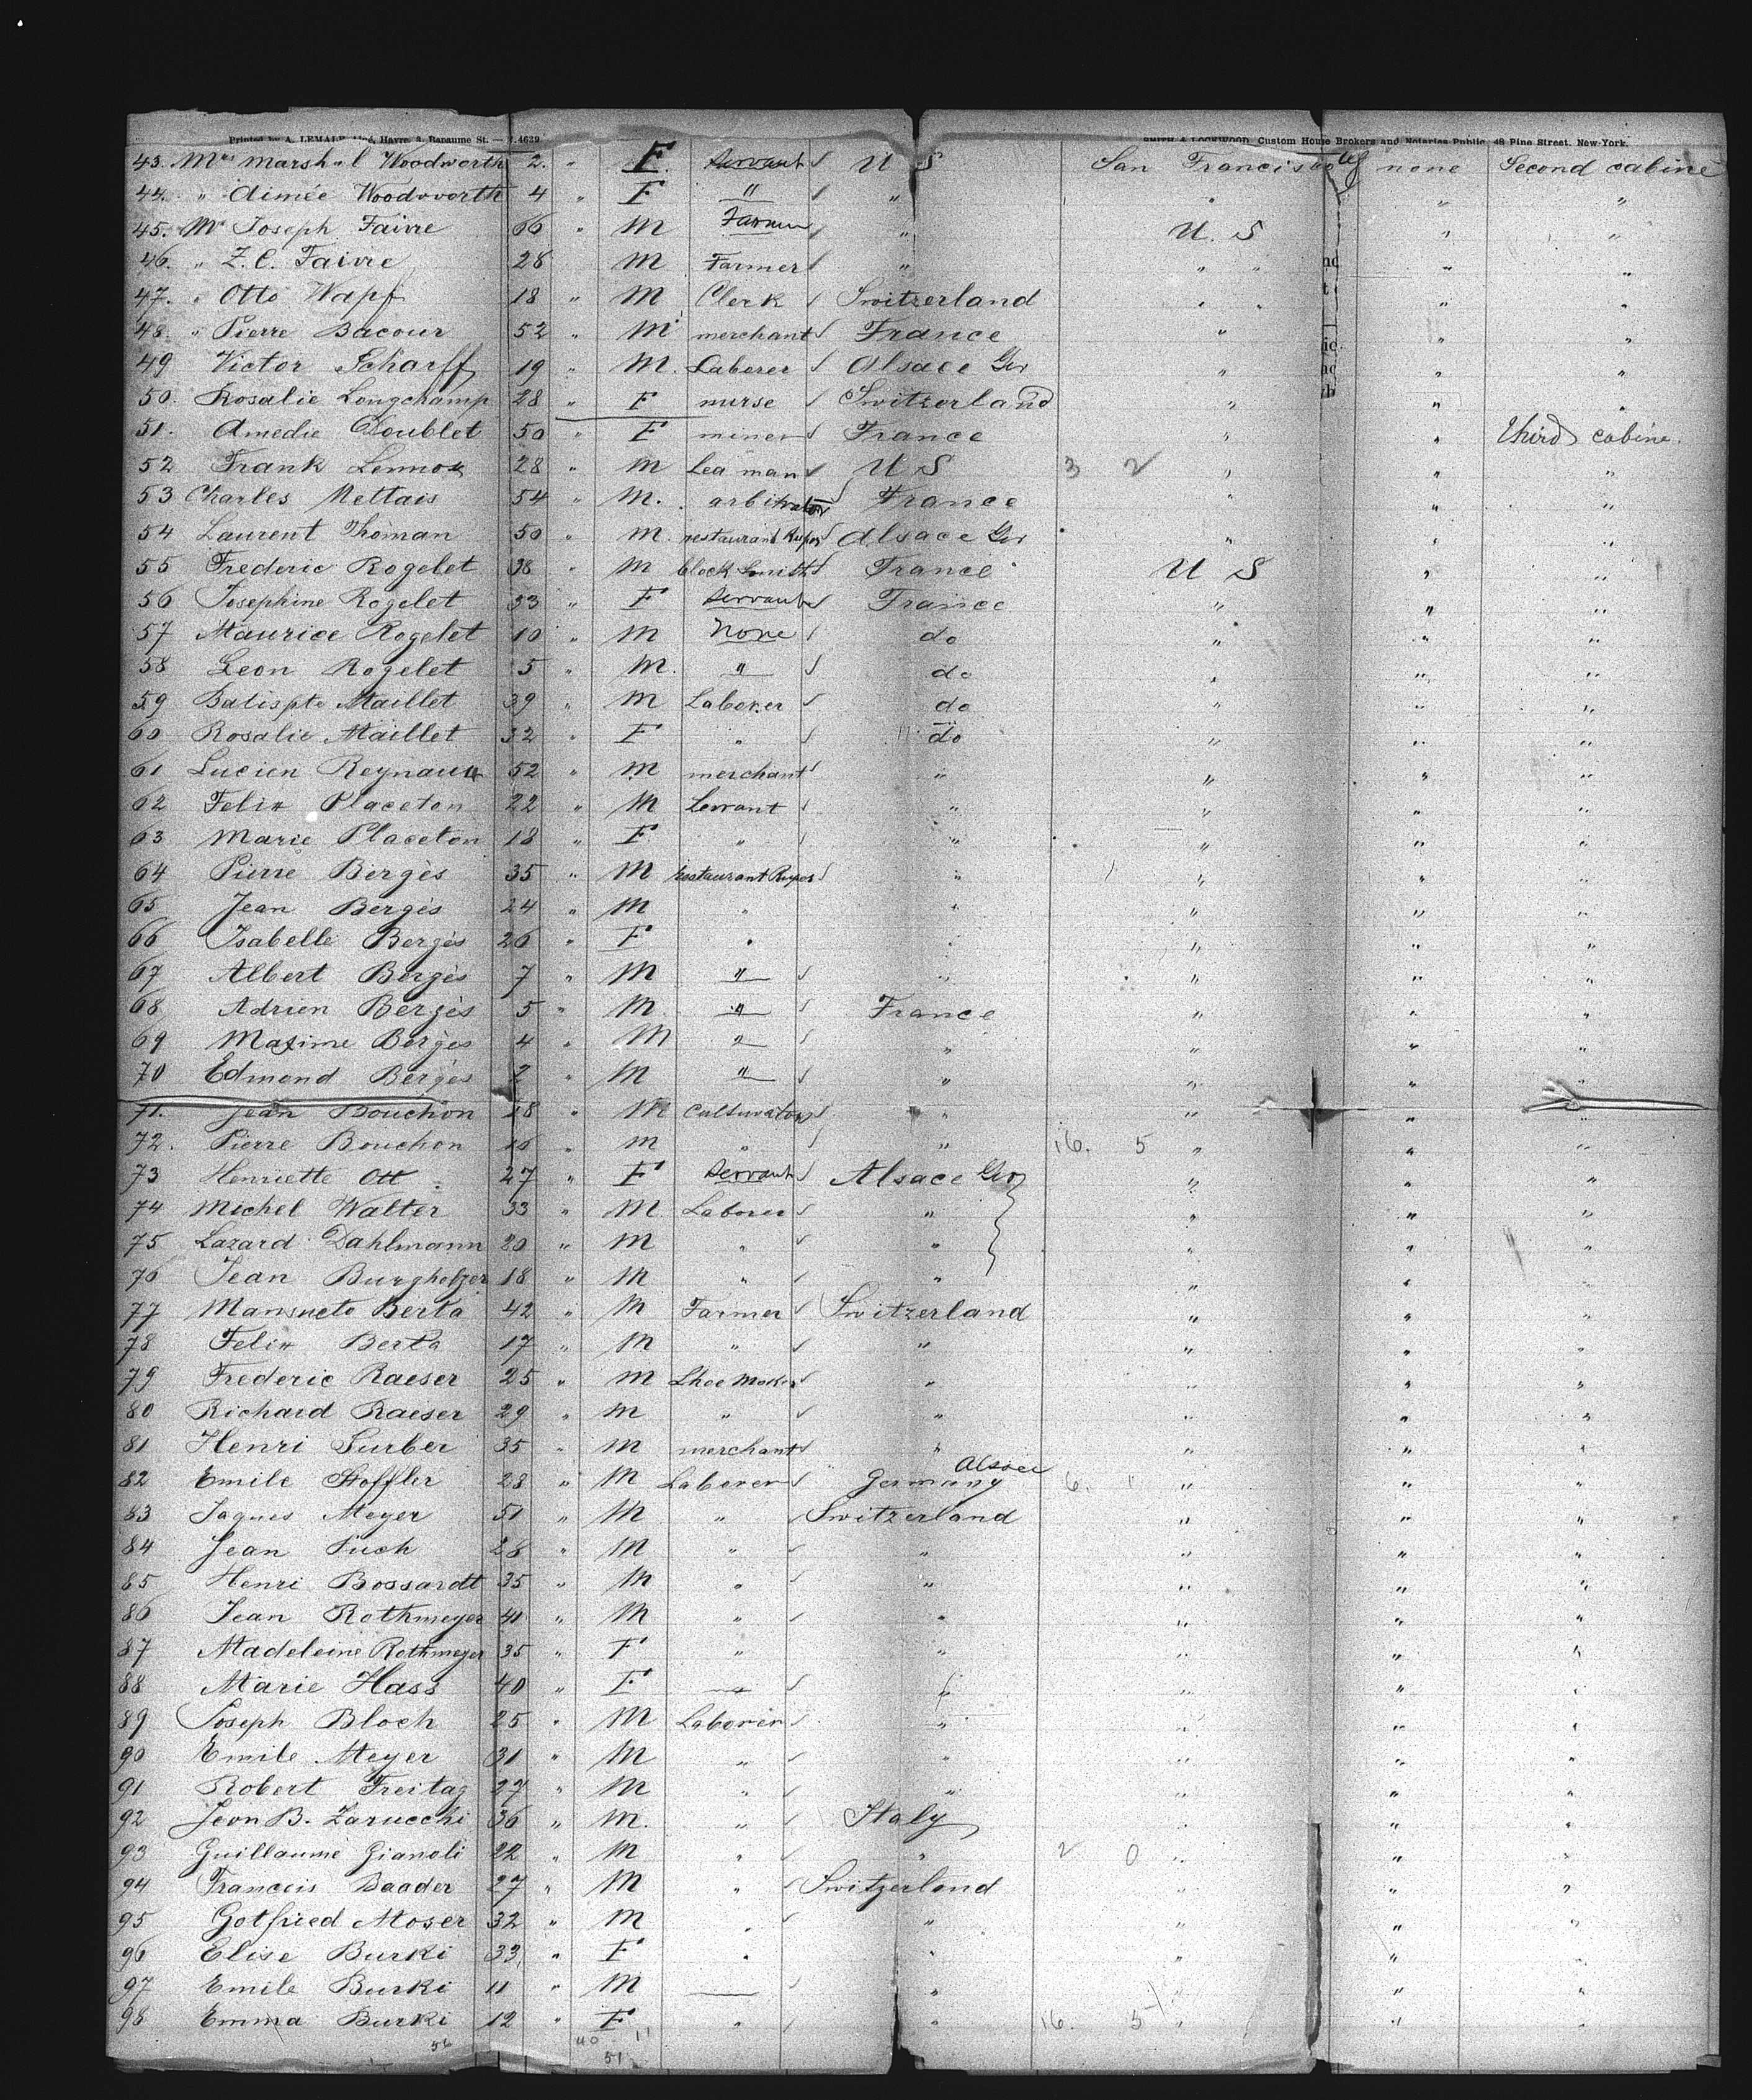 Printed by A. LEMALE Aîné, Havre, 3, Bapaume St. — 7.4629 SMITH & LOCKWOOD, Custom House Brokers and Notaries Public, 48 Pine Street, New-York.
43. Mrs Marshal Woodworth 2. " F. Servant U S San Francisco none Second cabine
44. " Aimée Woodworth 4 " F " " " " "
45. Mr Joseph Faivre 66 " M Farmer " U. S " "
46. " Z. C. Faivre 28 M Farmer " " " " "
47. " Otto Wapf 18 " M Clerk Switzerland " " " "
48. " Pierre Bacour 52 " M merchant France " " "
49 Victor Scharff 19 " M. Laborer Alsace Ger " " "
50. Rosalie Longchamp 28 " F nurse Switzerland " " "
51. Amedie Doublet 50 " F miner France " " third cabine.
52 Frank Lennox 28 " M Sea man U S 3 2 " " "
53 Charles Mettais 54 " M. arbitrator France " " "
54 Laurent Thoman 50 " M. restaurant keeper Alsace Ger " " "
55 Frederic Rogelet 38 " M black Smith France U S " "
56 Josephine Rogelet 33 " F Servant France " " "
57 Maurice Rogelet 10 " M None do " " "
58 Leon Rogelet 5 " M. " do " " "
59 Batispte Maillet 39 " M Laborer do " " "
60 Rosalie Maillet 32 " F " do " " "
61 Lucien Reynaux 52 " M merchant " " " "
62 Felix Placeton 22 " M Servant " " " "
63 Marie Placeton 18 " F " " " " "
64 Pierre Bergès 35 " M restaurant Keeper " " " "
65 Jean Bergès 24 " M " " " " "
66 Isabelle Bergès 26 " F " " " " "
67 Albert Bergès 7 " M " " " " "
68 Adrien Bergès 5 " M. " France " " "
69 Maxime Bergès 4 " M " " " " "
70 Edmond Bergès 2 " M " " " " "
71. Jean Bouchon 18 " M cultivator " " " "
72. Pierre Bouchon 16 " M " " 16. 5 " " "
73 Henriette Ott 27 " F Servant Alsace Ger " " "
74 Michel Walter 33 " M Laborer " " " "
75 Lazard Dahlmann 20 " M " " " " "
76 Jean Burgholzer 18 " M " " " " "
77 Mansueto Berta 42 " M Farmer Switzerland " " "
78 Felix Berta 17 " M " " " " "
79 Frederic Raeser 25 " M Shoe Maker " " " "
80 Richard Raeser 29 " M " " " " "
81 Henri Surber 35 " M merchant " " " "
82 Emile Stoffler 28 " M Laborer Germany Alsace 6. 1 " " "
83 Jaques Meyer 51 " M " Switzerland " " "
84 Jean Such 28 " M " " " " "
85 Henri Bossardt 35 " M " " " " "
86 Jean Rothmeyer 41 " M " " " " "
87 Madeleine Rothmeyer 35 " F " " " " "
88 Marie Hass 40 " F — " " " "
89 Joseph Bloch 25 " M Laborer " " " "
90 Emile Meyer 31 " M " " " " "
91 Robert Freitag 27 " M " " " " "
92 Jean B. Zarucchi 36 " M. " Italy " " "
93 Guillaume Gianoli 22 " M " " 2 0 " " "
94 Francois Baader 27 " M " Switzerland " " "
95 Gotfried Moser 32 " M " " " " "
96 Elise Burki 33 " F " " " " "
97 Emile Burki 11 " M — " " " "
98 Emma Burki 12 " F " " 16. 5 " " "
56 40 11
51